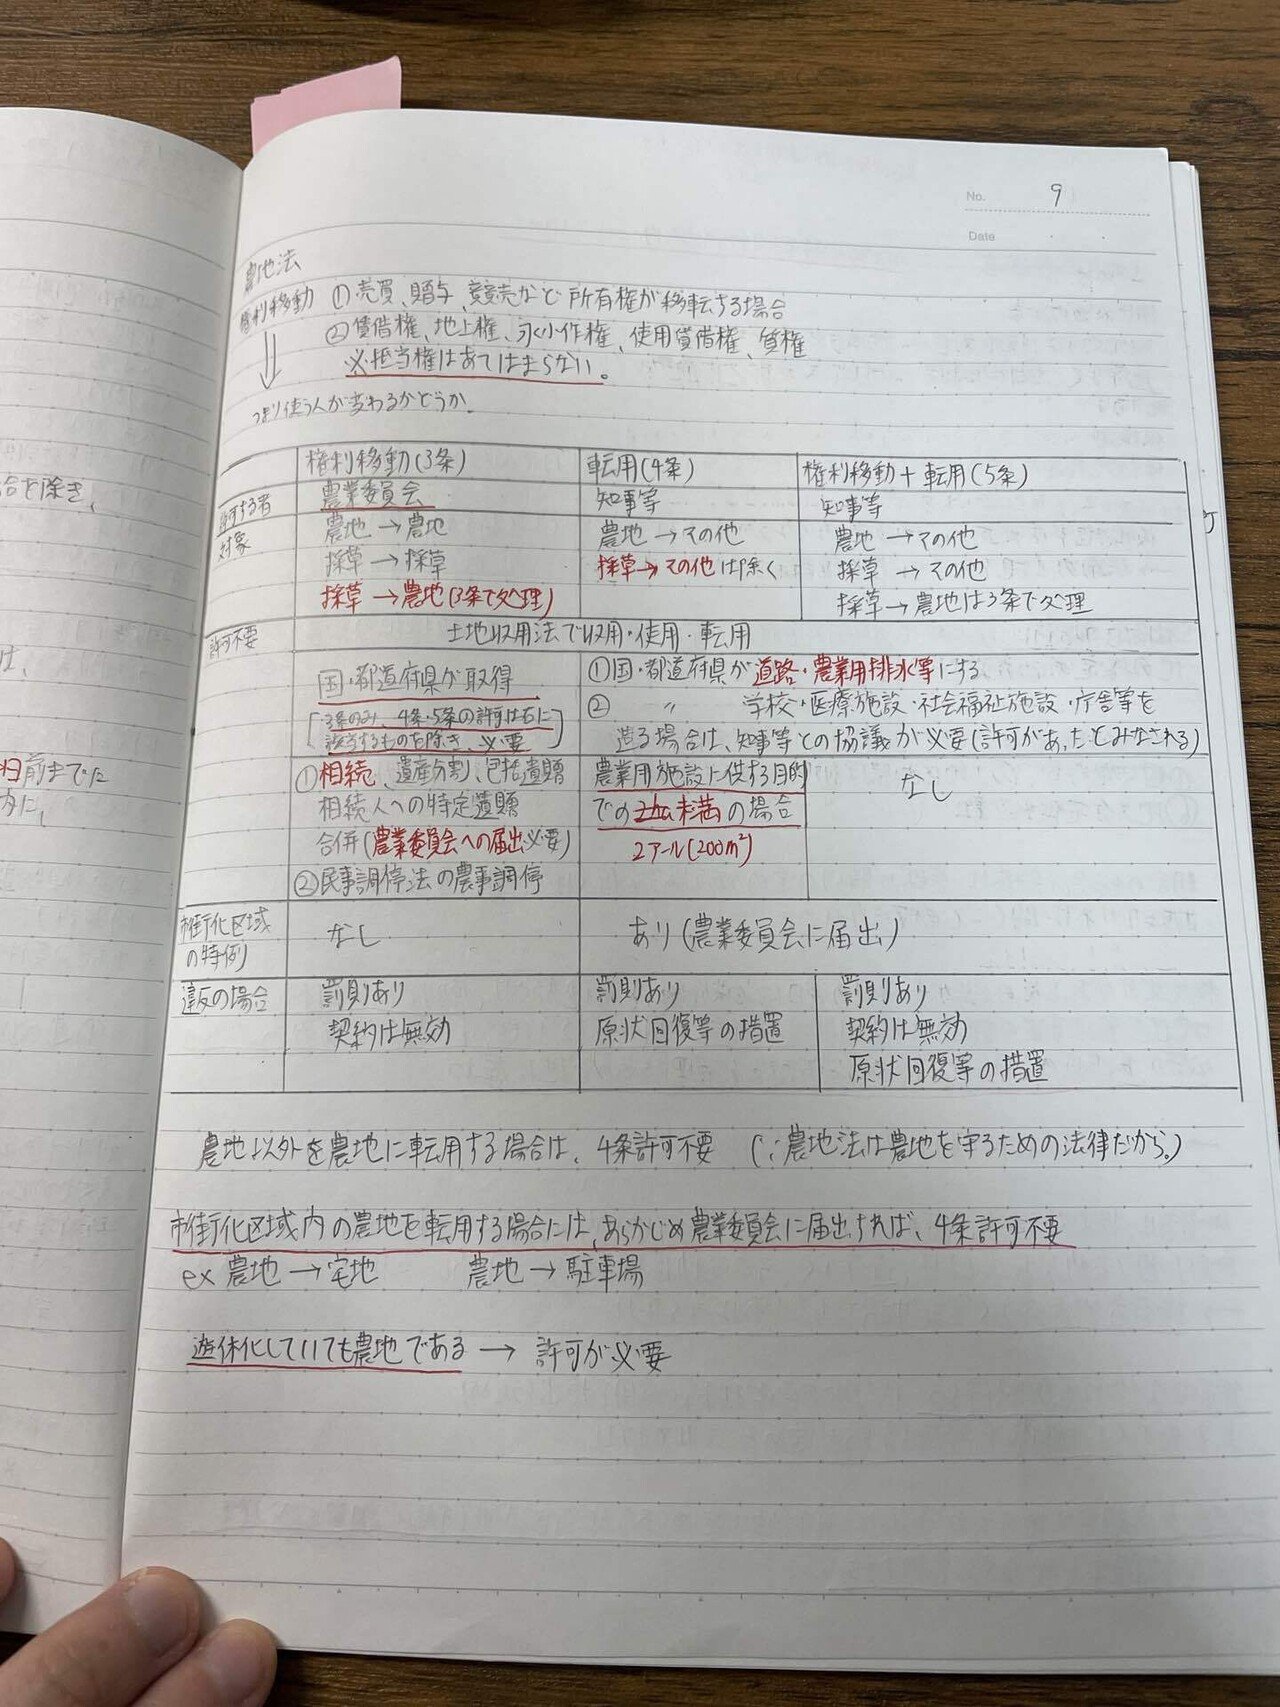 No. 9
Date
農地法
権利移動 ①売買、贈与、競売など所有権が移転する場合
②賃借権、地上権、永小作権、使用貸借権、質権
※抵当権はあてはまらない。
つまり使う人が変わるかどうか。
権利移動(3条) 転用(4条) 権利移動+転用(5条)
許可する者 農業委員会 知事等 知事等
対象 農地→農地 農地→その他 農地→その他
採草→採草 採草→その他は除く 採草→その他
採草→農地(3条で処理) 採草→農地は3条で処理
許可不要 土地収用法で収用・使用・転用
国・都道府県が取得 ①国・都道府県が道路・農業用排水等にする
[3条のみ、4条・5条の許可は右に ② 〃 学校・医療施設・社会福祉施設・庁舎等を
該当するものを除き、必要] 造る場合は、知事等との協議が必要(許可があったとみなされる)
①相続、遺産分割、包括遺贈 農業用施設に供する目的 なし
相続人への特定遺贈 での2a未満の場合
合併(農業委員会への届出必要) 2アール(200m²)
②民事調停法の農事調停
市街化区域 なし あり(農業委員会に届出)
の特例
違反の場合 罰則あり 罰則あり 罰則あり
契約は無効 原状回復等の措置 契約は無効
原状回復等の措置
農地以外を農地に転用する場合は、4条許可不要 (∵農地法は農地を守るための法律だから。)
市街化区域内の農地を転用する場合には、あらかじめ農業委員会に届出すれば、4条許可不要
ex 農地→宅地 農地→駐車場
遊休化していても農地である → 許可が必要
合を除き、
は、
日前までに
方に、